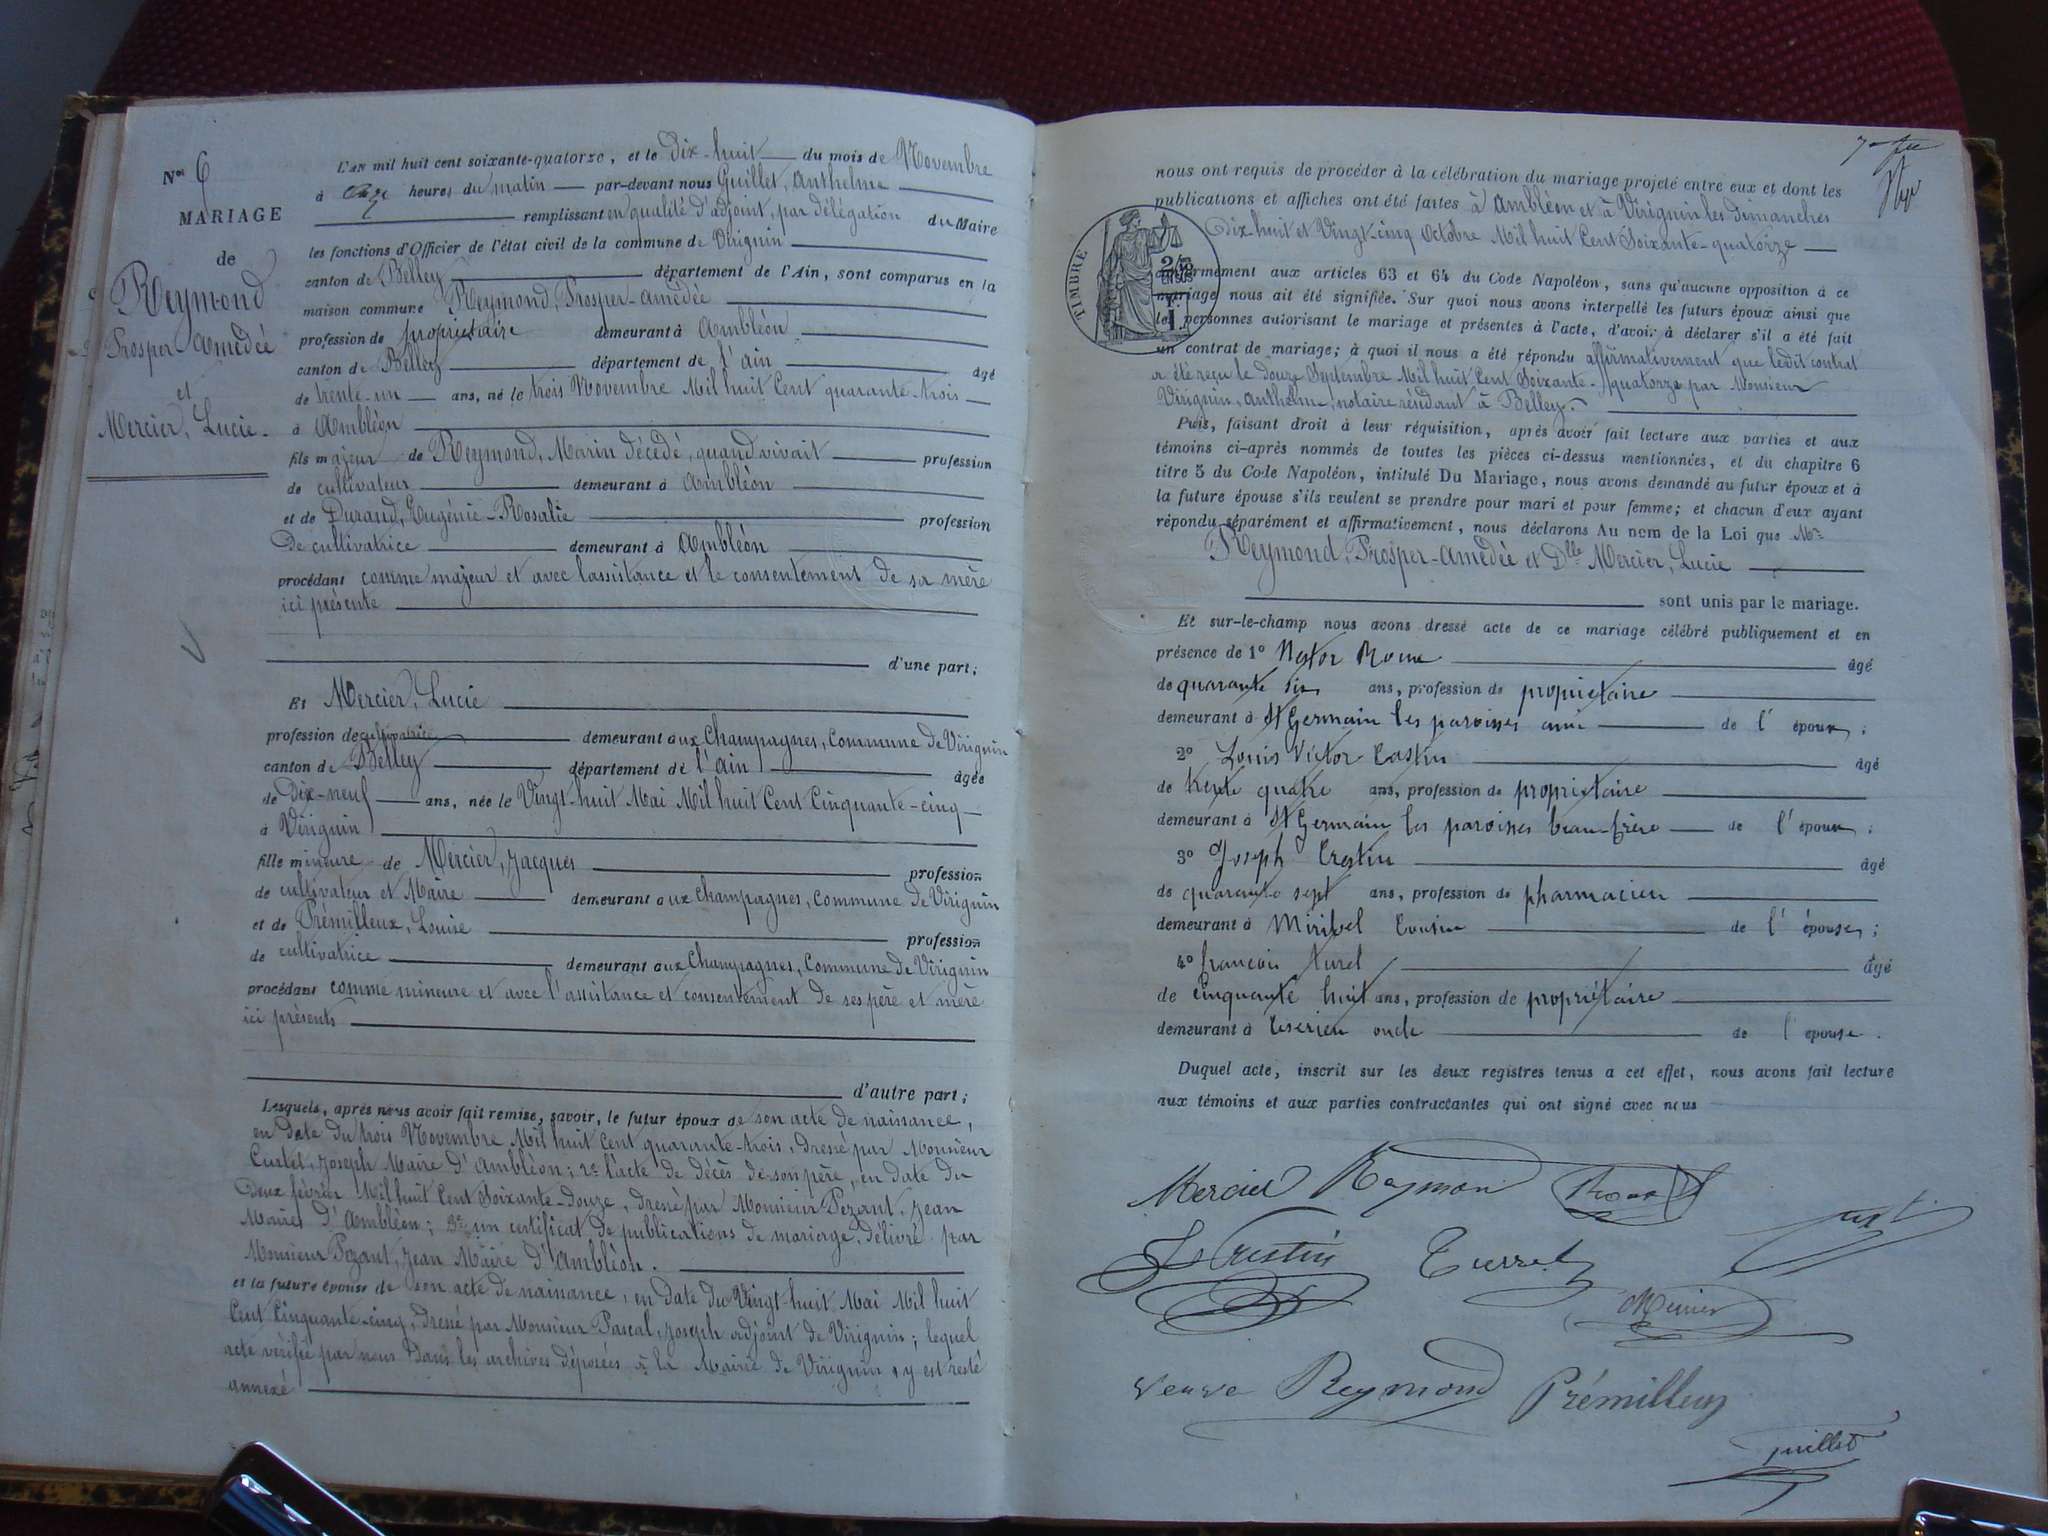 Nos 6
MARIAGE
de
Reymond
Prosper-Amédée
et
Mercier, Lucie.
L'AN mil huit cent soixante-quatorze, et le Dix-huit du mois de Novembre
à onze heures du matin par-devant nous Guillet, Anthelme
remplissant en qualité d'adjoint, par délégation du Maire
les fonctions d'Officier de l'état civil de la commune de Virignin
canton de Belley département de l'Ain, sont comparus en la
maison commune Reymond, Prosper-Amédée
profession de propriétaire demeurant à Ambléon
canton de Belley département de l'ain âgé
de trente-un ans, né le trois Novembre Mil huit Cent quarante-trois
à Ambléon
fils majeur de Reymond, Marin décédé, quand vivait profession
de cultivateur demeurant à Ambléon
et de Durand, Eugénie-Rosalie profession
De cultivatrice demeurant à Ambléon
procédant comme majeur et avec l'assistance et le consentement de sa mère
ici présente
d'une part;
Et Mercier, Lucie
profession de cultivatrice demeurant aux Champagnes, Commune de Virignin
canton de Belley département de l'ain âgée
de Dix-neuf ans, née le Vingt-huit Mai Mil huit Cent Cinquante-cinq
à Virignin
fille mineure de Mercier, Jacques profession
de cultivateur et Maire demeurant aux Champagnes, Commune de Virignin
et de Prémilleux, Louise profession
de cultivatrice demeurant aux Champagnes, Commune de Virignin
procédant comme mineure et avec l'assistance et consentement de ses père et mère
ici présents
d'autre part;
Lesquels, après nous avoir fait remise, savoir, le futur époux de son acte de naissance,
en date du trois Novembre Mil huit Cent quarante-trois, dressé par Monsieur
Curtet, Joseph Maire d'Ambléon; 2° l'acte de décès de son père, en date du
Deux février Mil huit Cent Soixante-Douze, dressé par Monsieur Pezant, Jean
Maire d'Ambléon; 3° un certificat de publications de mariage, délivré par
Monsieur Pezant, Jean Maire d'Ambléon.
et la future épouse de son acte de naissance, en date du Vingt-huit Mai Mil huit
Cent Cinquante-cinq, dressé par Monsieur Pascal, Joseph adjoint de Virignin; lequel
acte vérifié par nous dans les archives déposées à la Mairie de Virignin y est resté
annexé
nous ont requis de procéder à la célébration du mariage projeté entre eux et dont les
publications et affiches ont été faites à Ambléon et à Virignin les dimanches
Dix-huit et Vingt-cinq Octobre Mil huit Cent Soixante-quatorze
conformément aux articles 63 et 64 du Code Napoléon, sans qu'aucune opposition à ce
mariage nous ait été signifiée. Sur quoi nous avons interpellé les futurs époux ainsi que
les personnes autorisant le mariage et présentes à l'acte, d'avoir à déclarer s'il a été fait
un contrat de mariage; à quoi il nous a été répondu affirmativement que ledit contrat
a été reçu le douze Septembre Mil huit Cent Soixante-quatorze par Monsieur
Virignin, Anthelme, notaire résidant à Belley.
TIMBRE
Puis, faisant droit à leur réquisition, après avoir fait lecture aux parties et aux
témoins ci-après nommés de toutes les pièces ci-dessus mentionnées, et du chapitre 6
titre 5 du Code Napoléon, intitulé Du Mariage, nous avons demandé au futur époux et à
la future épouse s'ils veulent se prendre pour mari et pour femme; et chacun d'eux ayant
répondu séparément et affirmativement, nous déclarons Au nom de la Loi que Mr
Reymond, Prosper-Amédée et Dlle Mercier, Lucie
sont unis par le mariage.
Et sur-le-champ nous avons dressé acte de ce mariage célébré publiquement et en
présence de 1° Nestor Roux âgé
de quarante six ans, profession de propriétaire
demeurant à St Germain les paroisses ami de l'époux;
2° Louis Victor Castin âgé
de trente quatre ans, profession de propriétaire
demeurant à St Germain les paroisses beau-frère de l'époux;
3° Joseph Crestin âgé
de quarante sept ans, profession de pharmacien
demeurant à Miribel Cousin de l'épouse;
4° françois Turel âgé
de Cinquante huit ans, profession de propriétaire
demeurant à Ceserieu oncle de l'épouse.
Duquel acte, inscrit sur les deux registres tenus à cet effet, nous avons fait lecture
aux témoins et aux parties contractantes qui ont signé avec nous
Mercier Reymond Roux
Js Crestin Turrel
Mercier
Veuve Reymond Prémilleux
Guillet